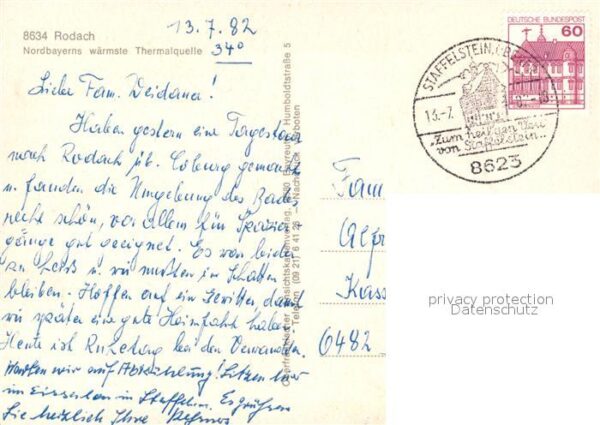 13.7.82
8634 Rodach
Nordbayerns wärmste Thermalquelle 34°
Liebe Fam.
Haben gestern eine Tagestour
nach Rodach üb. Coburg gemacht
u. fanden die Umgebung des Bades
recht schön, vor allem für Spazier
gänge gut geeignet. Es war leider
zu heiß u. wir mußten im Schatten
bleiben. Hoffen auf ein Gewitter damit
wir später eine gute Heimfahrt haben.
Heute ist Ruhetag bei den Verwandten.
Warten wir auf Abkühlung! Sitzen hier
im Eissalon in Staffeln. Es grüßen
Sie herzlich Ihre
Ansichtskartenverlag, Bayreuth, Humboldtstraße 5
Telefon (09 21) 6 41 28 — Nachdruck verboten
DEUTSCHE BUNDESPOST
60
STAFFELSTEIN
13.-7.
"Zum
von Staffelstein"
8623
Fam
Kass
6482
privacy protection
Datenschutz